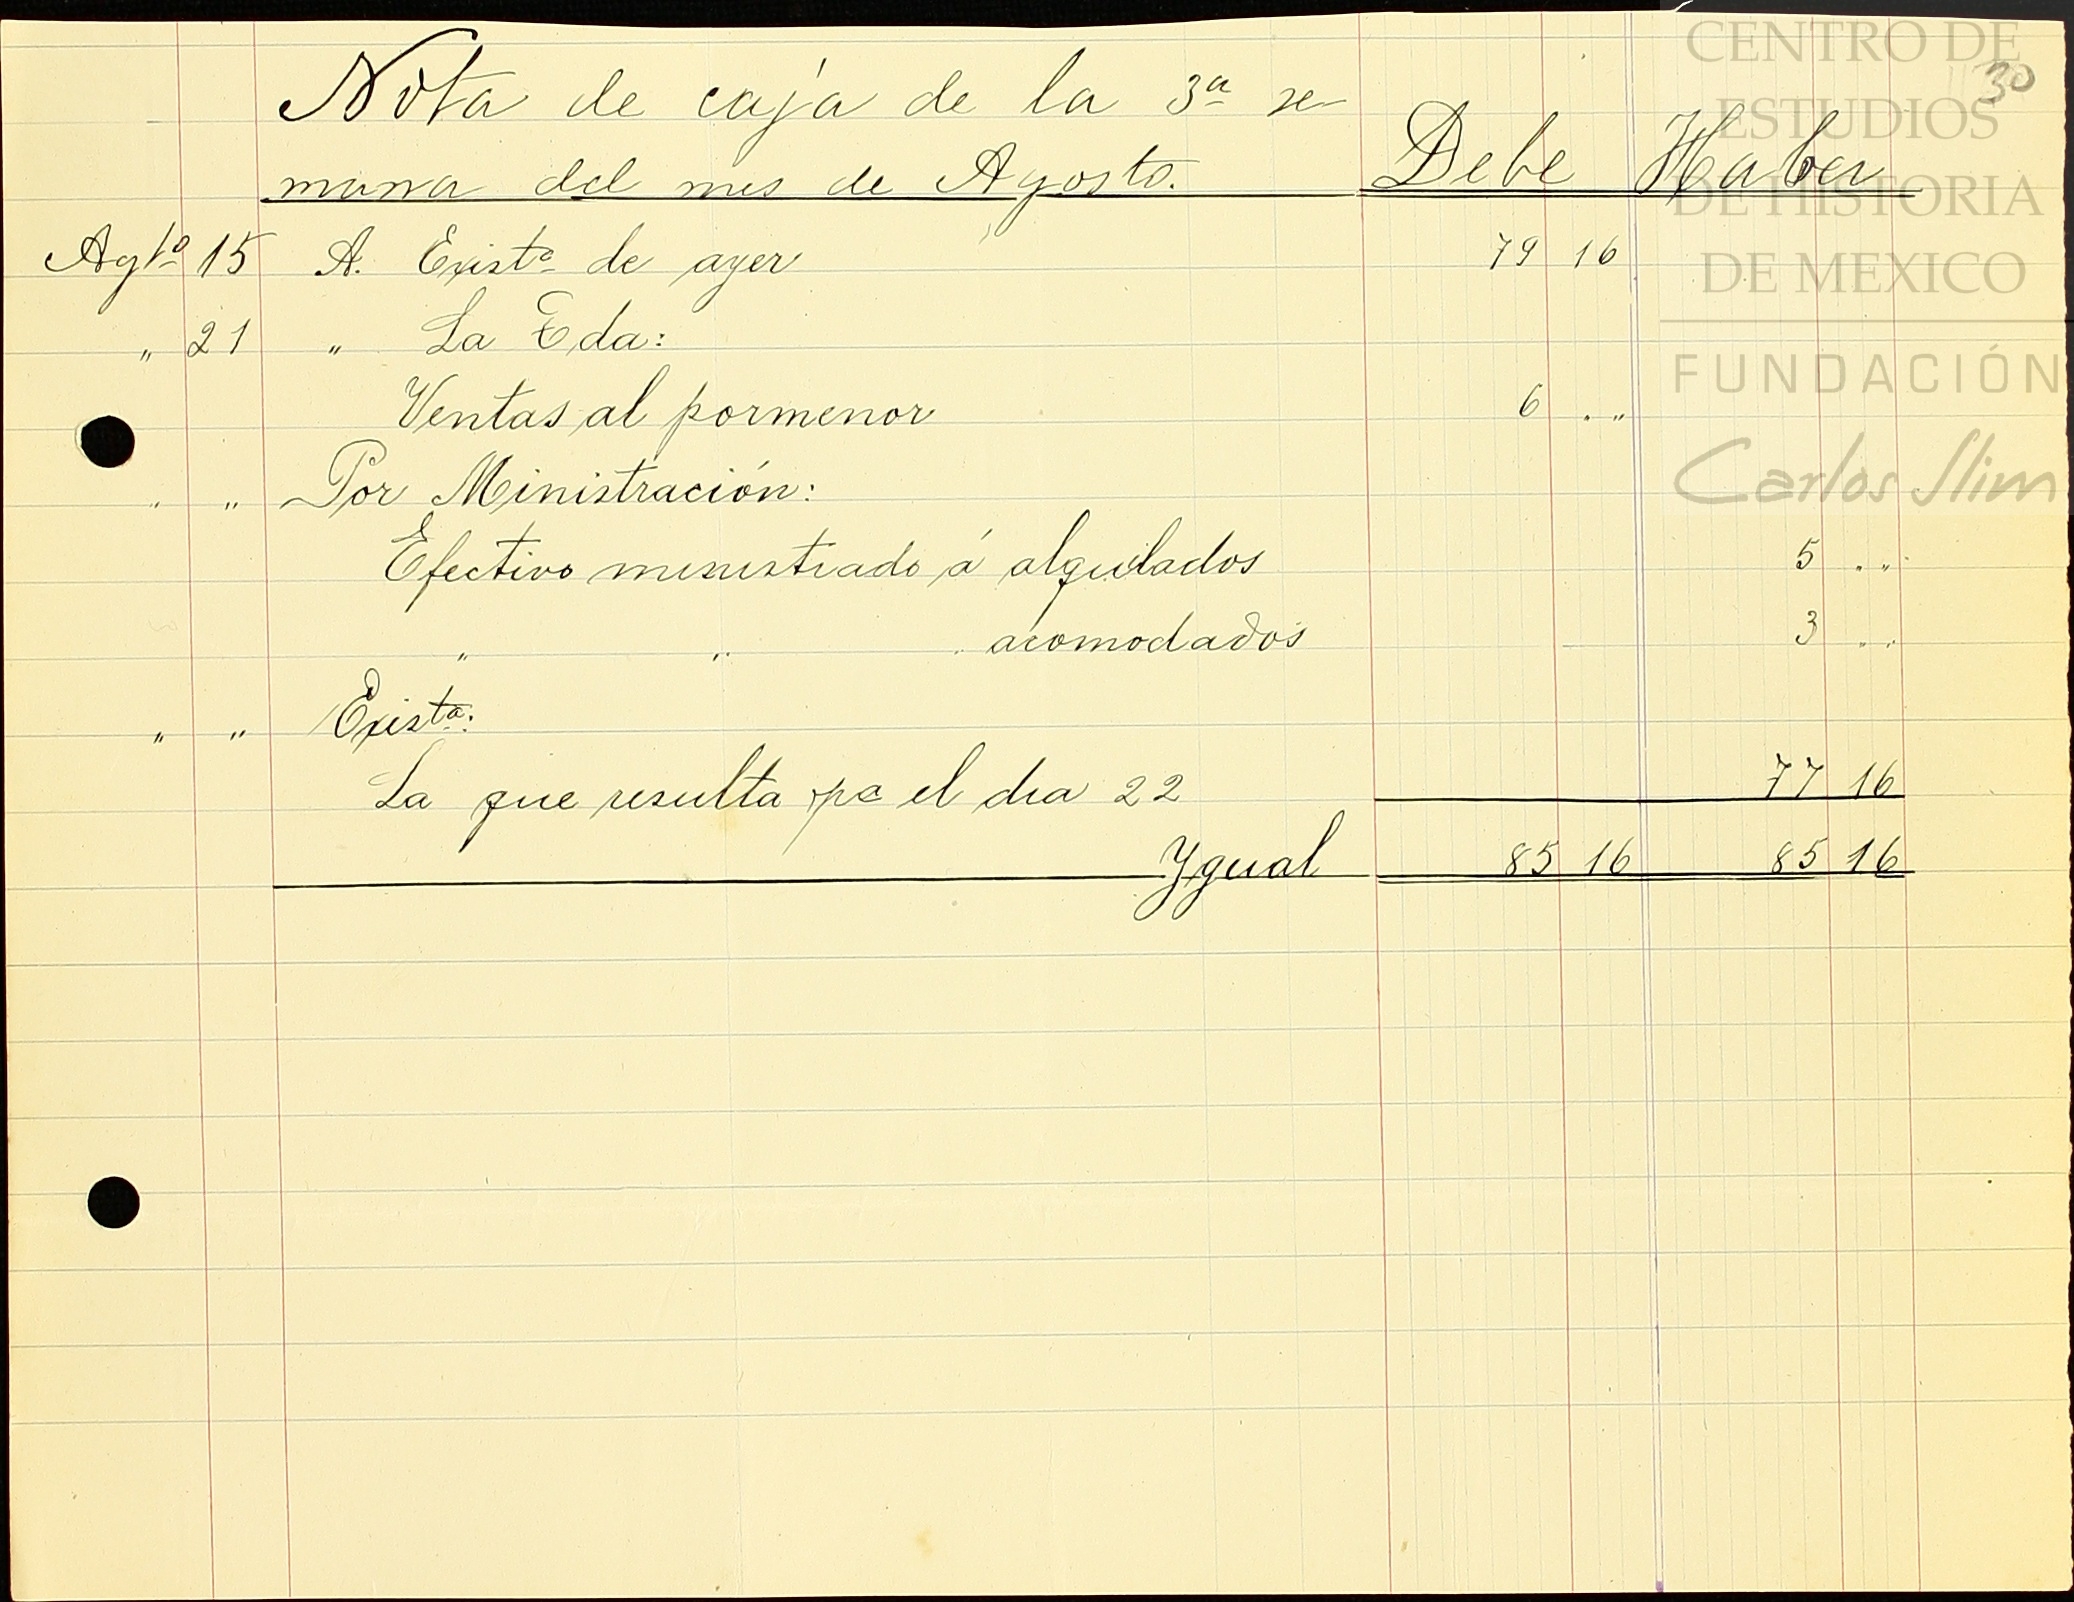 30
Nota de caja de la 3ª se-
mana del mes de Agosto. Debe Haber
Agtº 15 A. Existª de ayer 79 16
" 21 " La Eda:
Ventas al pormenor 6 " "
" " Por Ministración:
Efectivo ministrado á alquilados 5 " "
" " acomodados 3 " "
" " Existª:
La que resulta pª el dia 22 77 16
Ygual 85 16 85 16
CENTRO DE
ESTUDIOS
DE HISTORIA
DE MEXICO
FUNDACIÓN
Carlos Slim